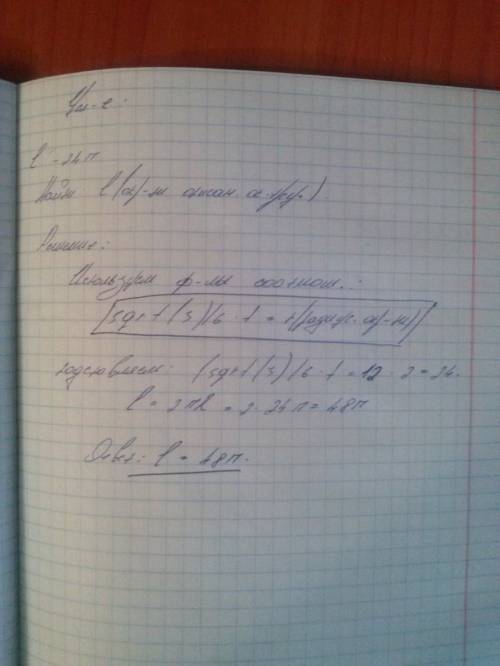 l = 24π
Найти l (окр-ти описан. ок. треуг.)
Решение:
Используем ф-лы соотнош.:
(sqrt(3)/6 · t = r(радиус окр-ти)
подставляем: (sqrt(3)/6 · t = 12 · 2 = 24.
l = 2πR = 2 · 24π = 48π
Ответ: l = 48π.